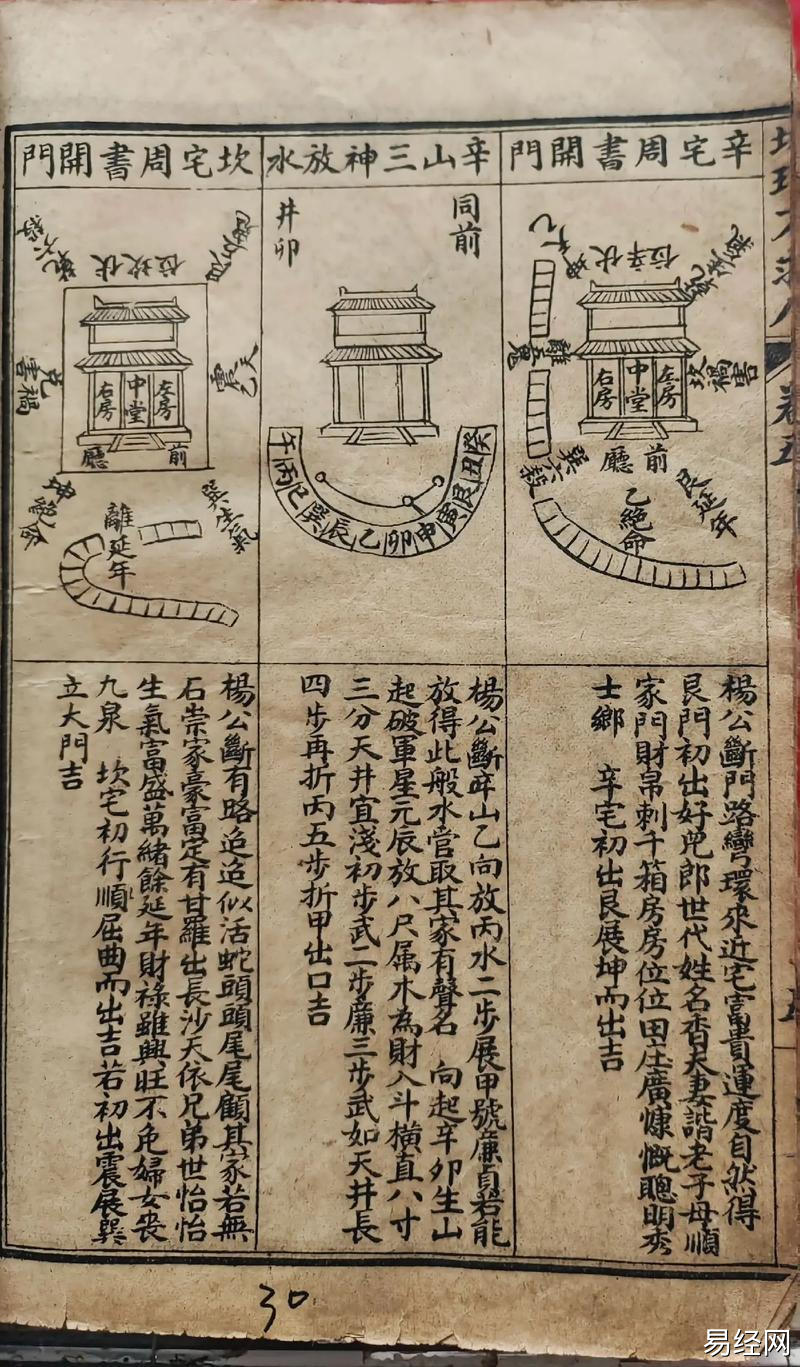 辛宅周書開門
辛山三神放水
坎宅周書開門
伏辛位
離五鬼
坎禍害
左房
中堂
右房
前廳
艮延年
乙絕命
楊公斷門路彎環來近宅富貴運度自然得
艮門初出好兒郎世代姓名香夫妻諧老子母順
家門財帛刺千箱房房位位田庄廣慷慨聰明秀
士鄉 辛宅初出艮展坤而出吉
同前
井卯
癸丑艮寅甲卯乙辰巽巳丙午
楊公斷辛山乙向放丙水二步展甲號廉貞若能
放得此般水管取其家有聲名 向起辛卯生山
起破軍星元辰放八尺属木為財入斗橫直八寸
三分天井宜淺初步武二步廉三步武如天井長
四步再折丙五步折甲出口吉
伏坎位
震天乙
兌禍害
左房
中堂
右房
前廳
巽生氣
離延年
坤絕命
楊公斷有路迢迢似活蛇頭頭尾尾顧其家若無
石崇家豪富定有甘羅出長沙天依兄弟世怡怡
生氣富盛萬緒餘延年財祿雖興旺不免婦女丧
九泉 坎宅初行順屈曲而出吉若初出震展巽
立大門吉
卷五
30
易经网